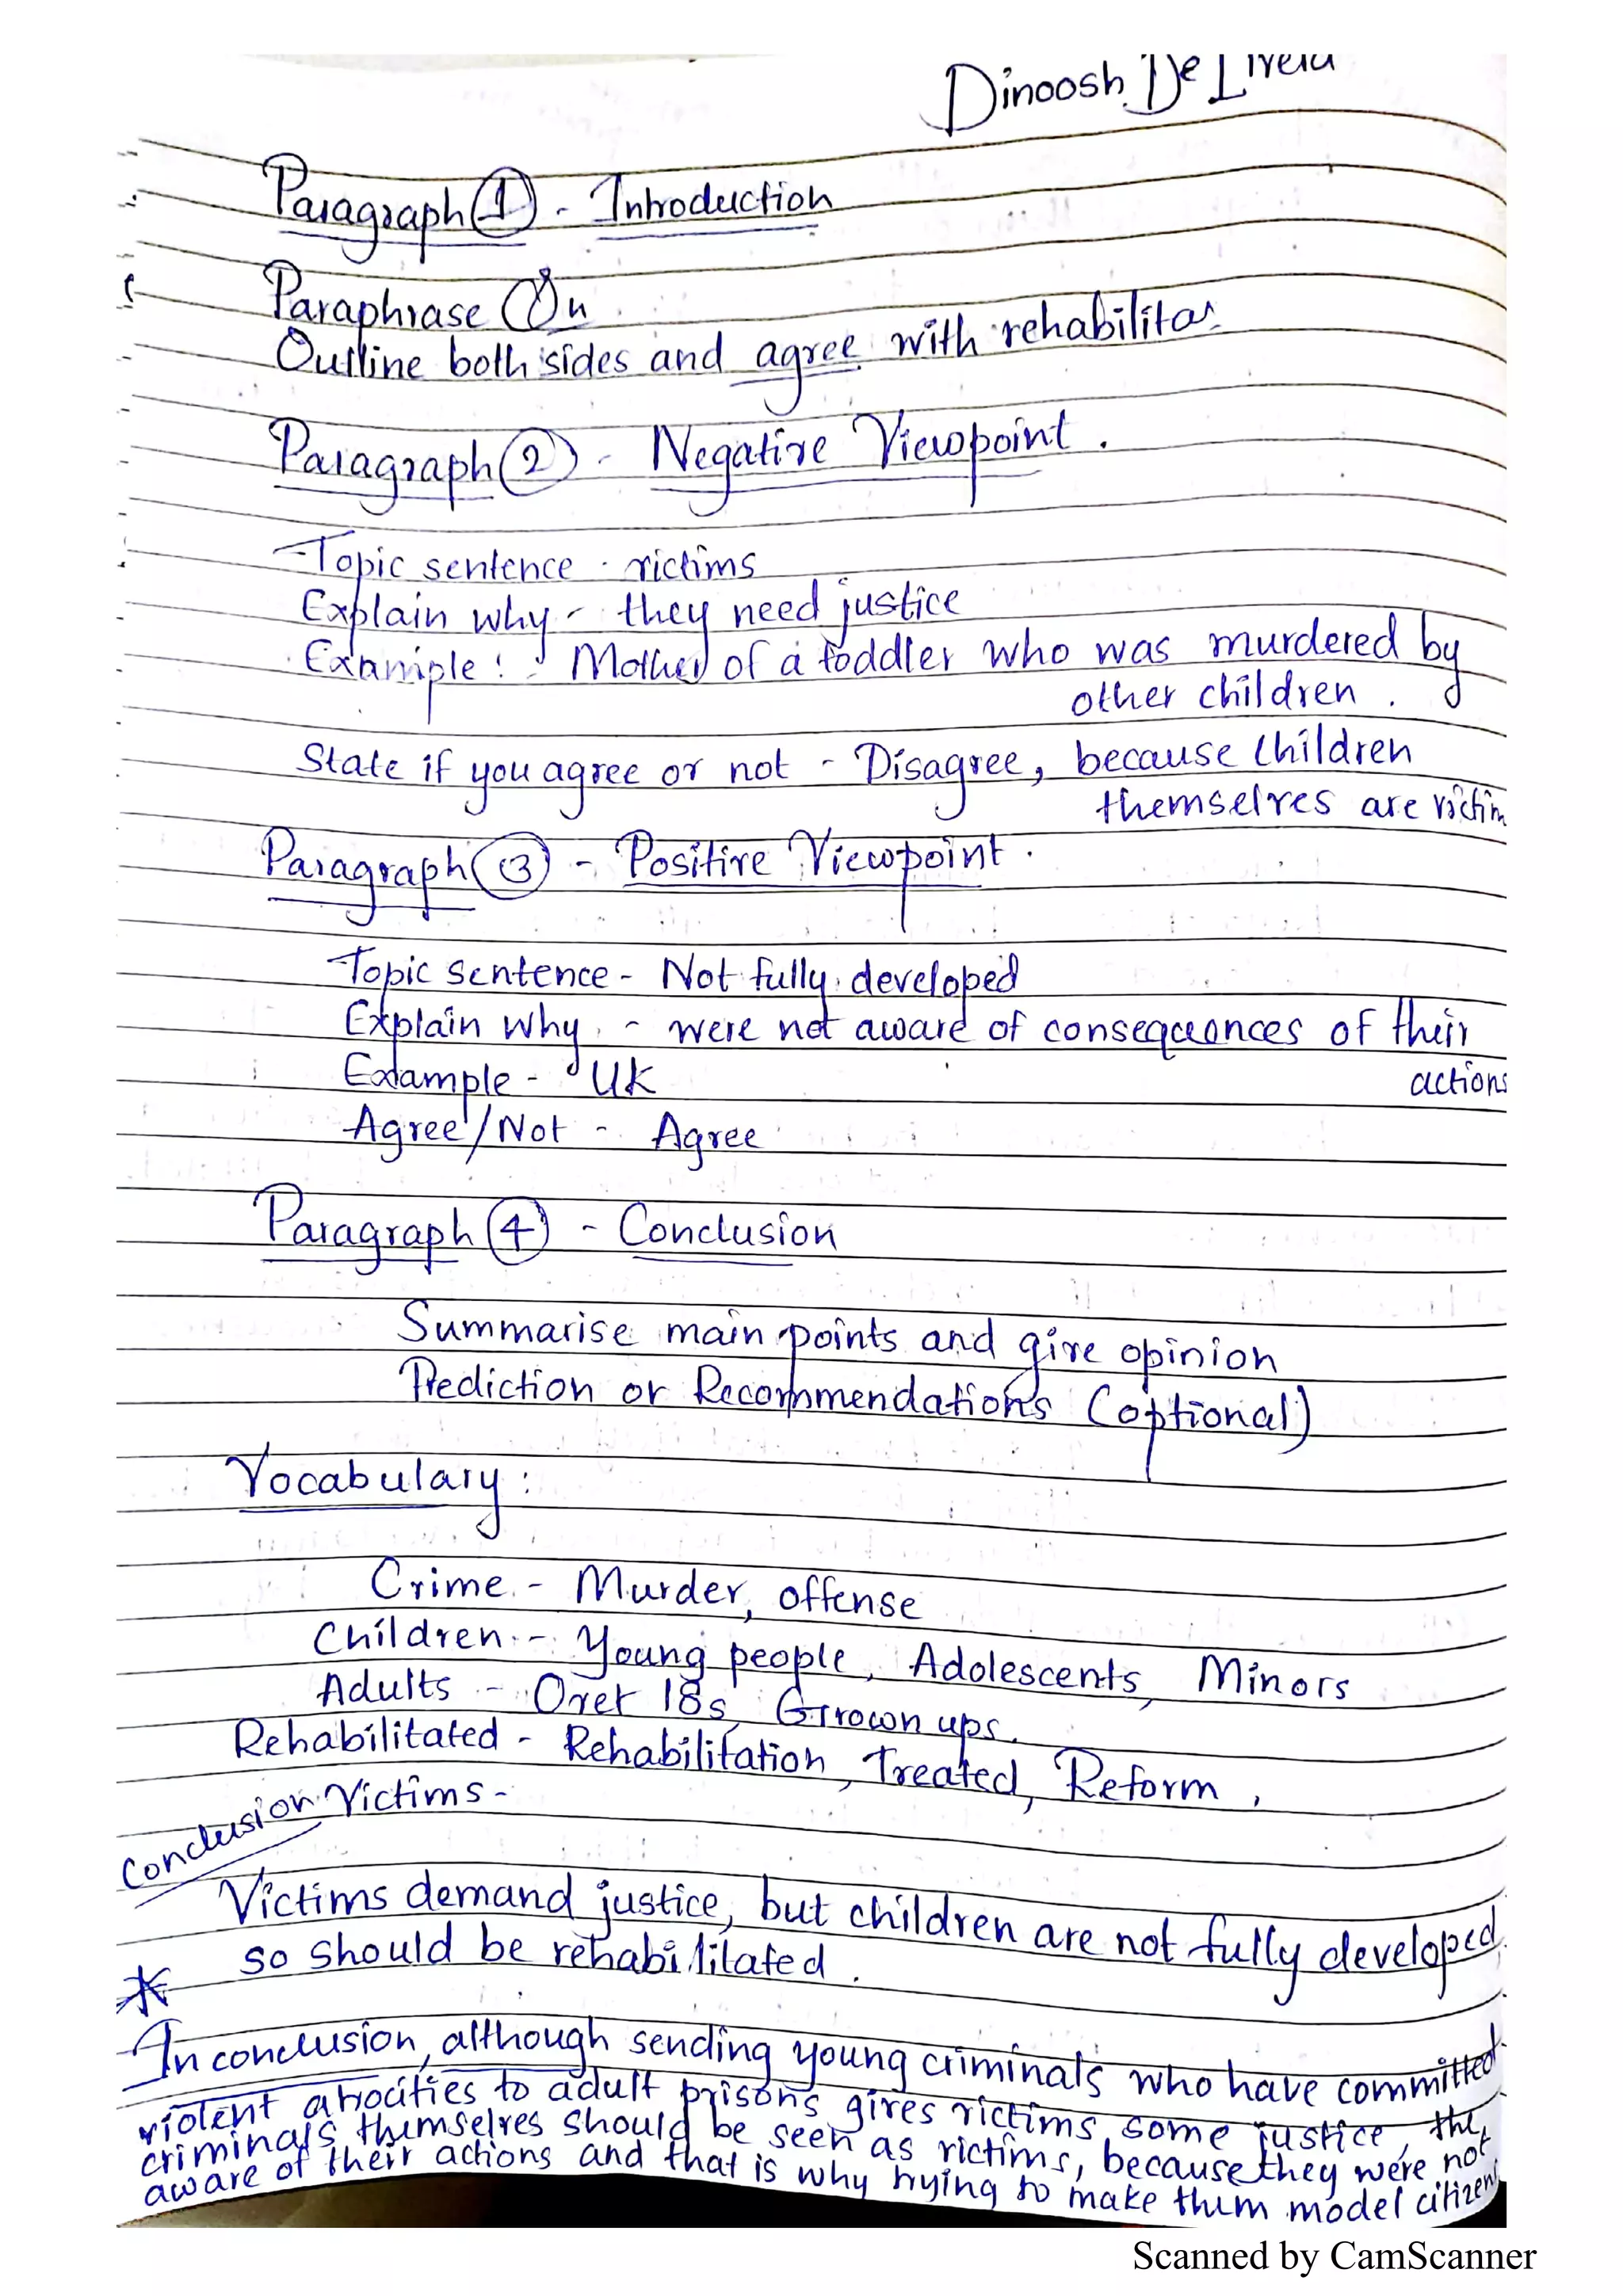 Dinoosh De Livera
Paragraph 1 - Introduction
Paraphrase Qu
Outline both sides and agree with rehabilita
Paragraph 2 - Negative Viewpoint.
Topic sentence - victims
Explain why - they need justice
Example: - Mother of a toddler who was murdered by
other children.
State if you agree or not - Disagree, because children
themselves are victim
Paragraph 3 - Positive Viewpoint.
Topic sentence - Not fully developed
Explain why - were not aware of consequences of their
actions
Example - UK
Agree/Not - Agree
Paragraph 4 - Conclusion
Summarise main points and give opinion
Prediction or Recommendations (optional)
Vocabulary:
Crime - Murder, offense
Children - Young people, Adolescents, Minors
Adults - Over 18s, Grown ups.
Rehabilitated - Rehabilitation, Treated, Reform,
Victims -
Conclusion
Victims demand justice, but children are not fully developed
so should be rehabilitated.
* In conclusion, although sending young criminals who have committed
violent atrocities to adult prisons gives victims some justice, the
criminals themselves should be seen as victims, because they were not
aware of their actions and that is why trying to make them model citizens
Scanned by CamScanner